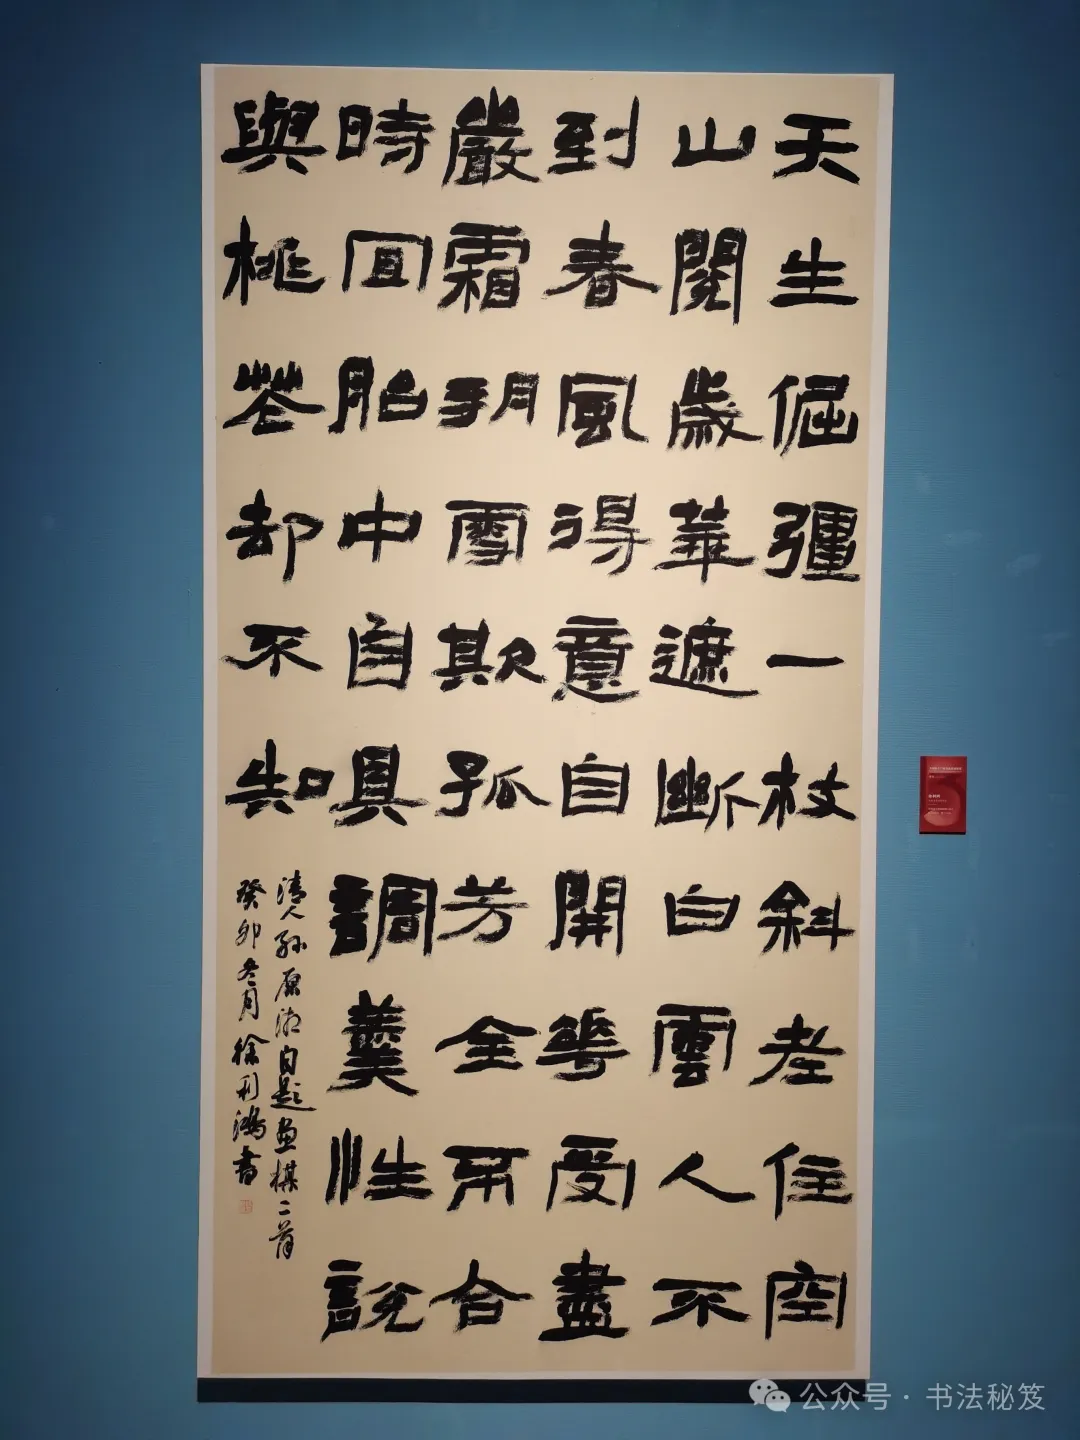 天生倔彊一枝斜老住空
山閱歲華遮斷白雲人不
到春風得意自開花受盡
嚴霜朔雪欺孤芳全不合
時宜胎中自具調羹性說
與桃花却不知
清人孫原湘自題畫楳二首
癸卯冬月徐利鴻書
公众号·书法秘笈